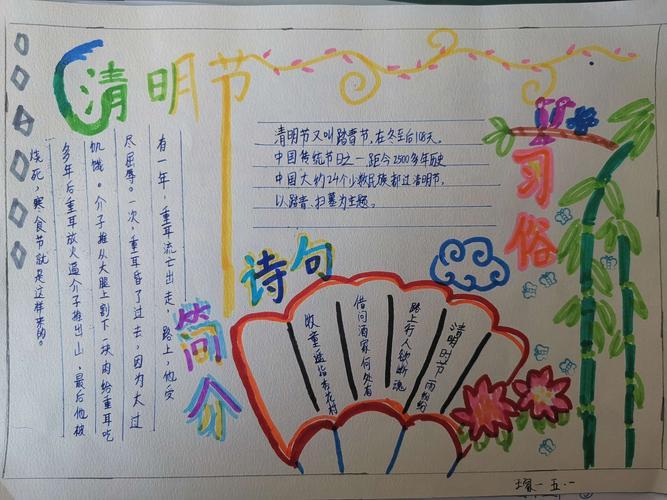 清明节
清明节又叫踏青节,在冬至后108天。
中国传统节日之一,距今2500多年历史
中国大约24个少数民族都过清明节,
以踏青、扫墓为主题。
习俗
简介
有一年,重耳流亡出走,路上,他受
尽屈辱。一次,重耳昏了过去,因为大过
饥饿。介子推从大腿上割下一块肉给重耳吃
多年后重耳放火逼介子推出山,最后他被
烧死,寒食节就是这样来的。
诗句
清明时节雨纷纷
路上行人欲断魂
借问酒家何处有
牧童遥指杏花村